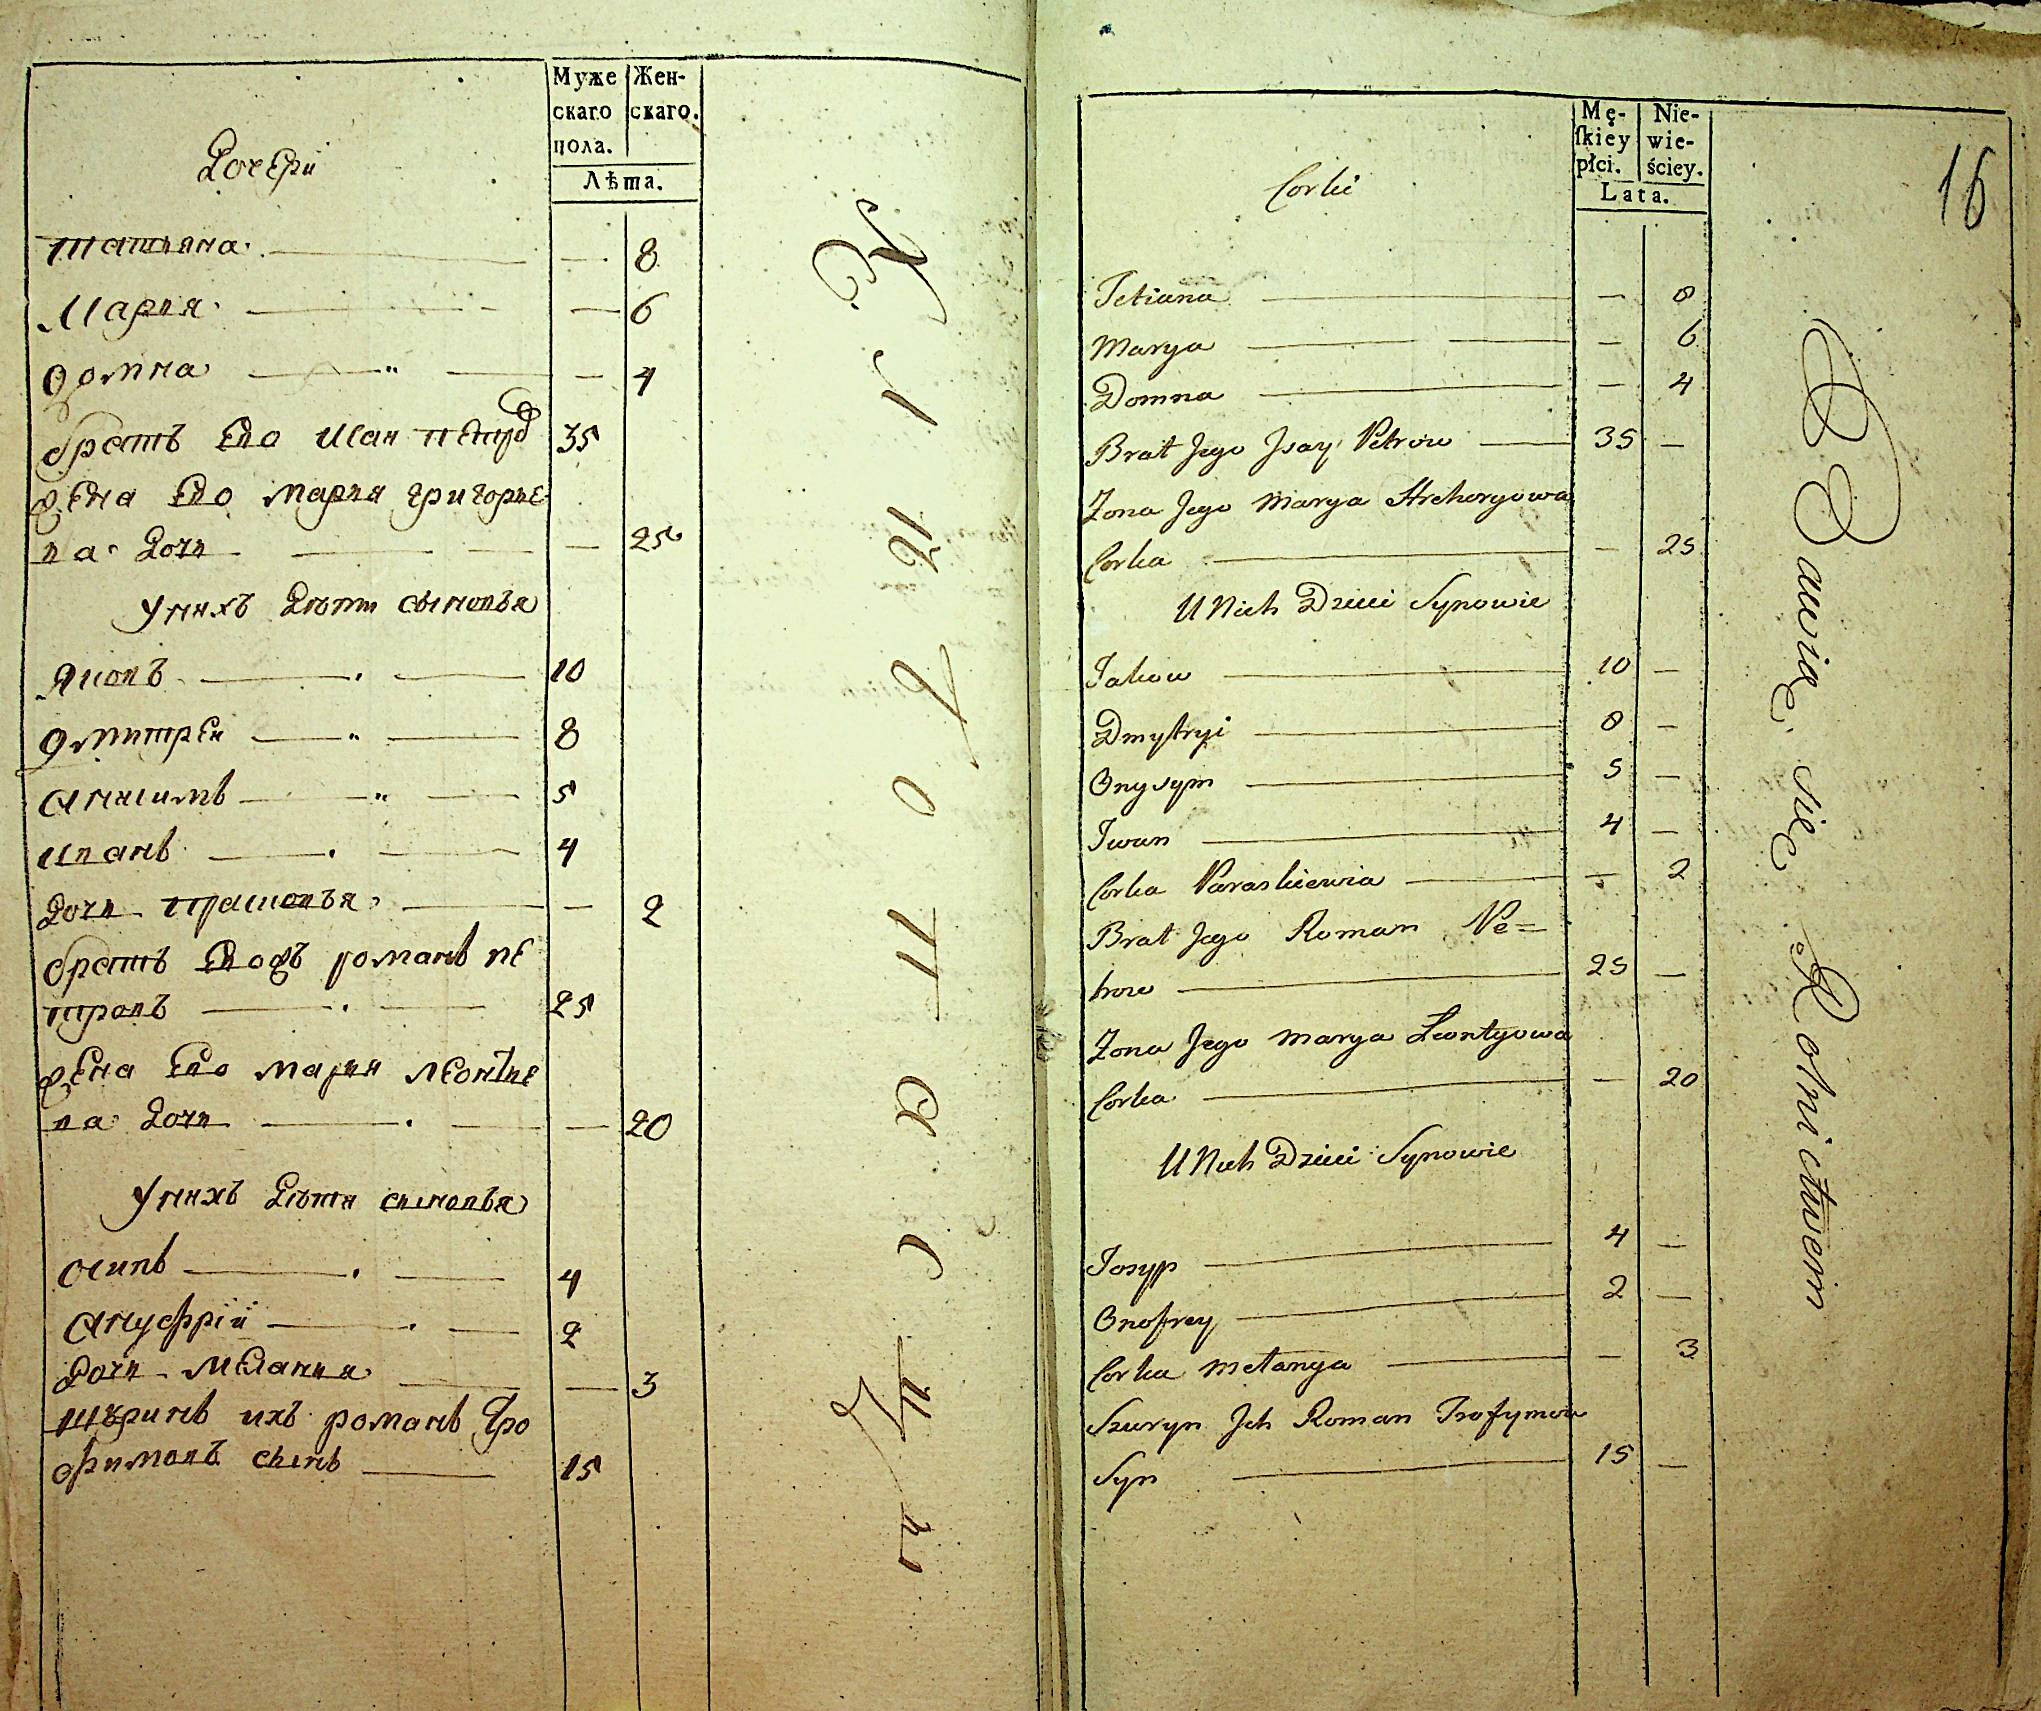 Муже
скаго
пола.
Жен-
скаго.
Лѣта.
Дочери
татьяна 8
Мария 6
Домна 4
братъ Ево Исаи петро 35
жена Ево мария григорье
ва Дочь 25
У нихъ Дѣти сыновья
Яковъ 10
Дмитреи 8
Анисимъ 5
Иванъ 4
Дочь прасковья 2
братъ Евожъ романъ пе
тровъ 25
жена Ево мария леонтье
ва Дочь 20
У нихъ Дѣти сыновья
Осипъ 4
Ануфрiй 2
Дочь Мелания 3
шуринъ ихъ романъ тро
фимовъ сынъ 15
16
Mę-
ſkiey
płci.
Nie-
wie-
ściey.
Lata.
Corki
Tetiana — 8
Marya — 6
Domna — 4
Brat Jego Jsay Petrow 35 —
Zona Jego Marya Hrehoryowa
Corka — 25
U Nich Dzieci Synowie
Jakow 10 —
Dmytryi 8 —
Onysym 5 —
Iwan 4 —
Corka Paraskiewia — 2
Brat Jego Roman Pe=
trow 25 —
Zona Jego Marya Leontyowa
Corka — 20
U Nich Dzieci Synowie
Josyp 4 —
Onofrey 2 —
Corka Melanya — 3
Szuryn Jch Roman Trofymow
Syn 15 —
Bawię się Rolnictwem